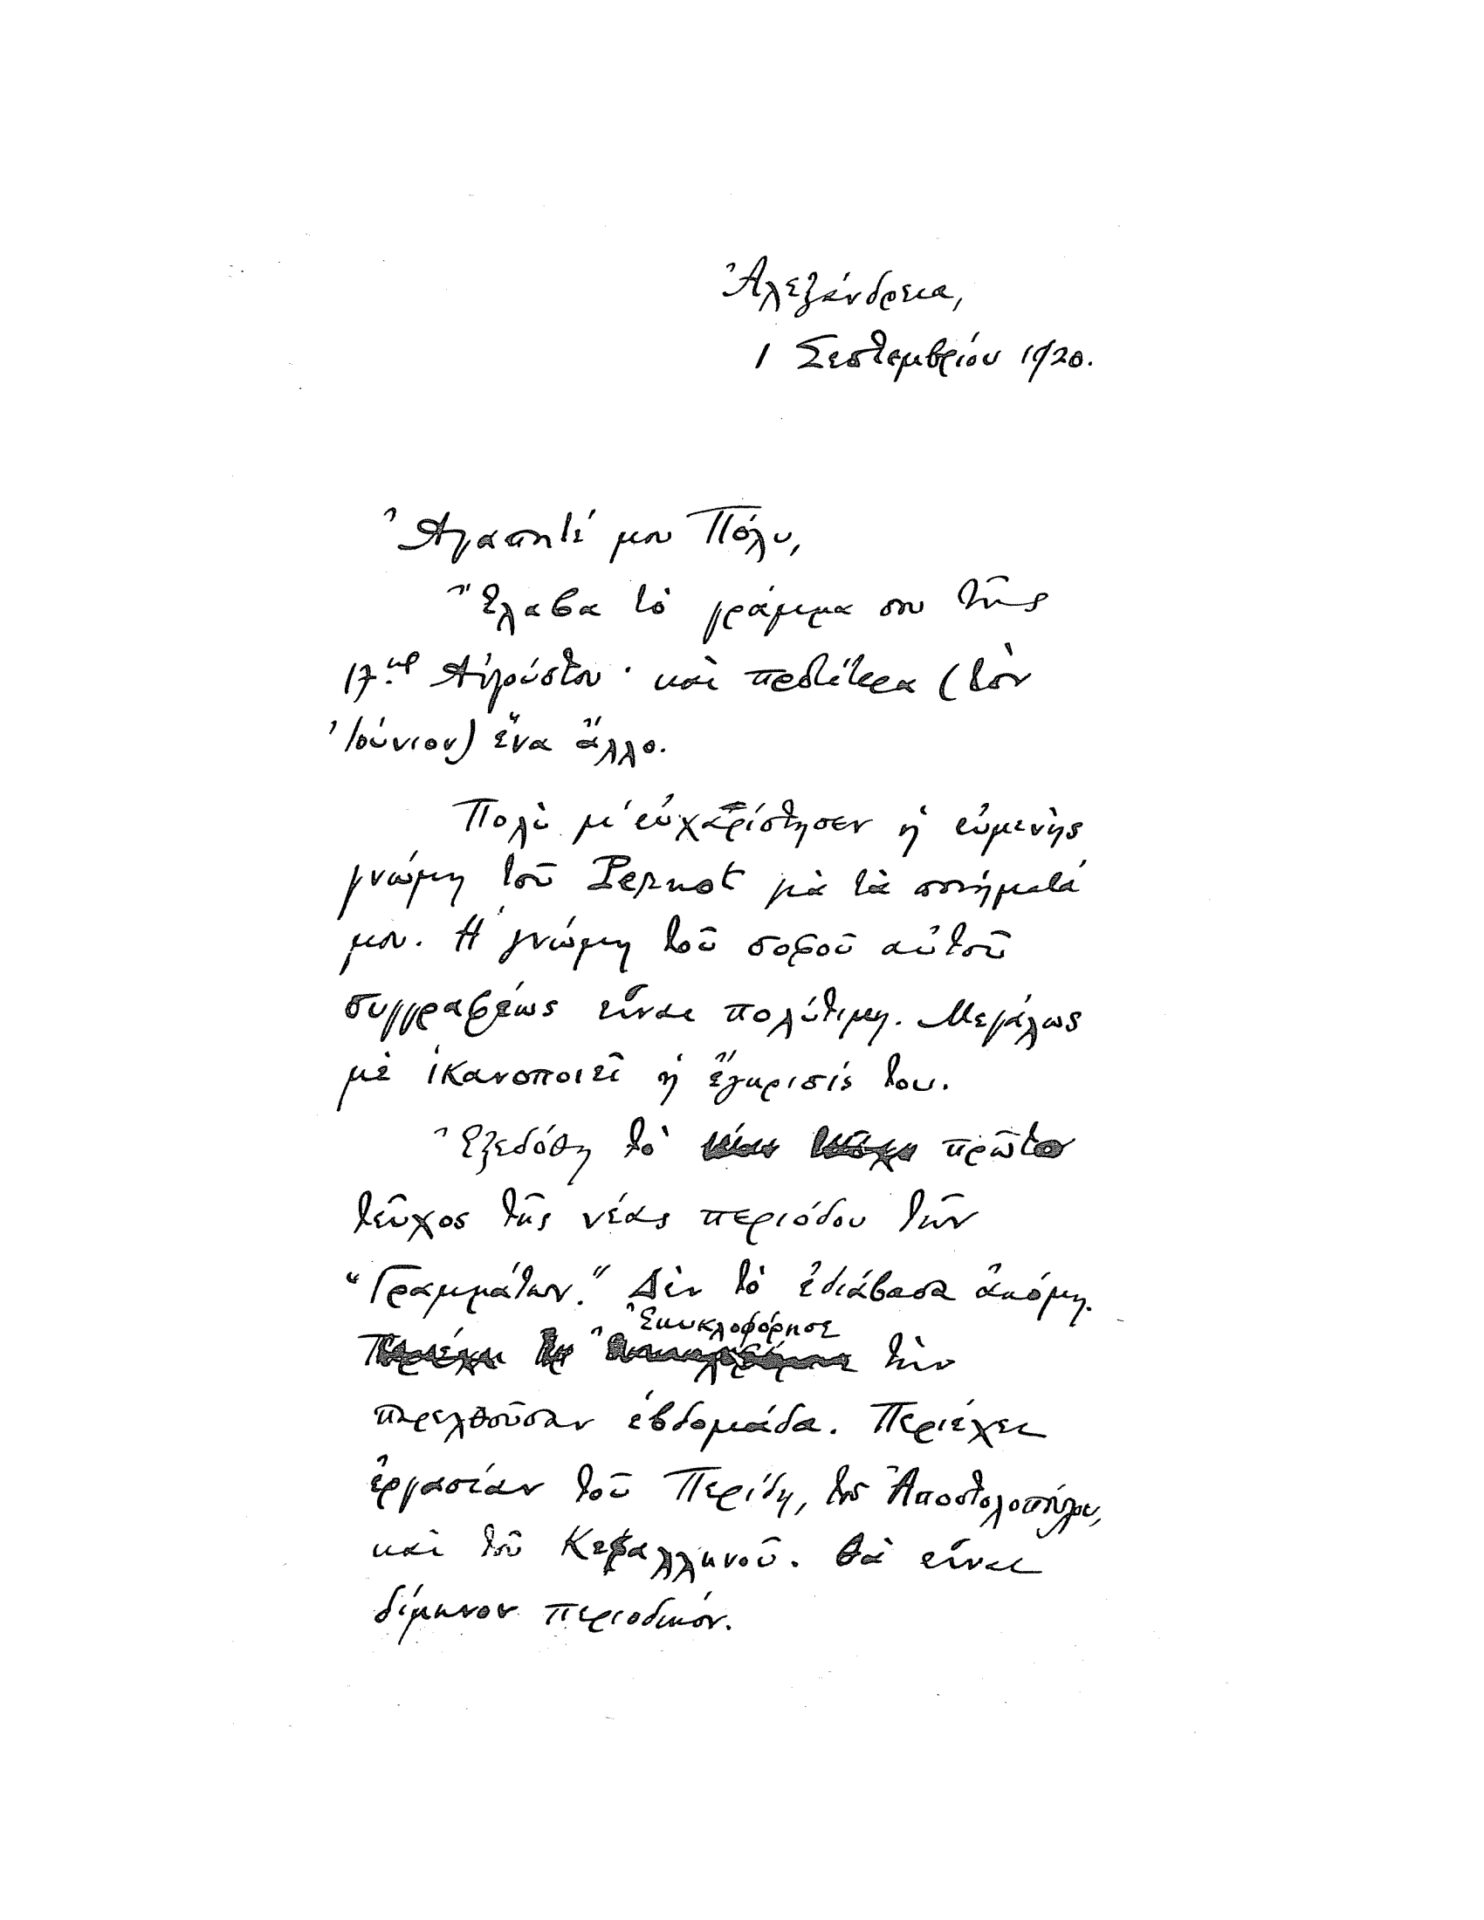 Ἀλεξάνδρεια,
1 Σεπτεμβρίου 1920.
Ἀγαπητέ μου Πόλυ,
Ἔλαβα τὸ γράμμα σου τῆς
17ης Αὐγούστου· καὶ προτίτερα (τὸν
Ἰούνιον) ἕνα ἄλλο.
Πολὺ μ' εὐχαρίστησεν ἡ εὐμενὴς
γνώμη τοῦ Pernot γιὰ τὰ ποιήματά
μου. Ἡ γνώμη τοῦ σοφοῦ αὐτοῦ
συγγραφέως εἶναι πολύτιμη. Μεγάλως
μὲ ἱκανοποιεῖ ἡ ἔγκρισίς του.
Ἐξεδόθη τὸ πρῶτο
τεῦχος τῆς νέας περιόδου τῶν
"Γραμμάτων." Δὲν τὸ ἐδιάβασα ἀκόμη.
Ἐκυκλοφόρησε
τὴν
παρελθοῦσαν ἑβδομάδα. Περιέχει
ἐργασίαν τοῦ Περίδη, τοῦ Ἀποστολοπούλου,
καὶ τοῦ Κεφαλληνοῦ. Θὰ εἶναι
δίμηνον περιοδικόν.